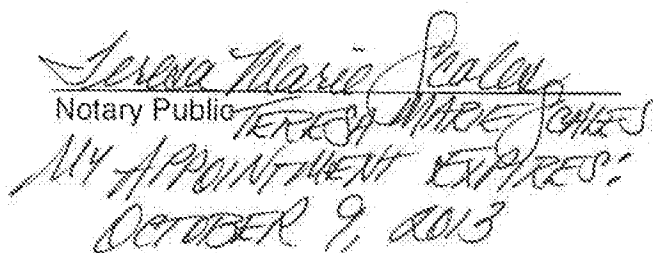 Teresa Marie Scales
Notary Public TERESA MARIE SCALES
MY APPOINTMENT EXPIRES:
OCTOBER 9, 2013